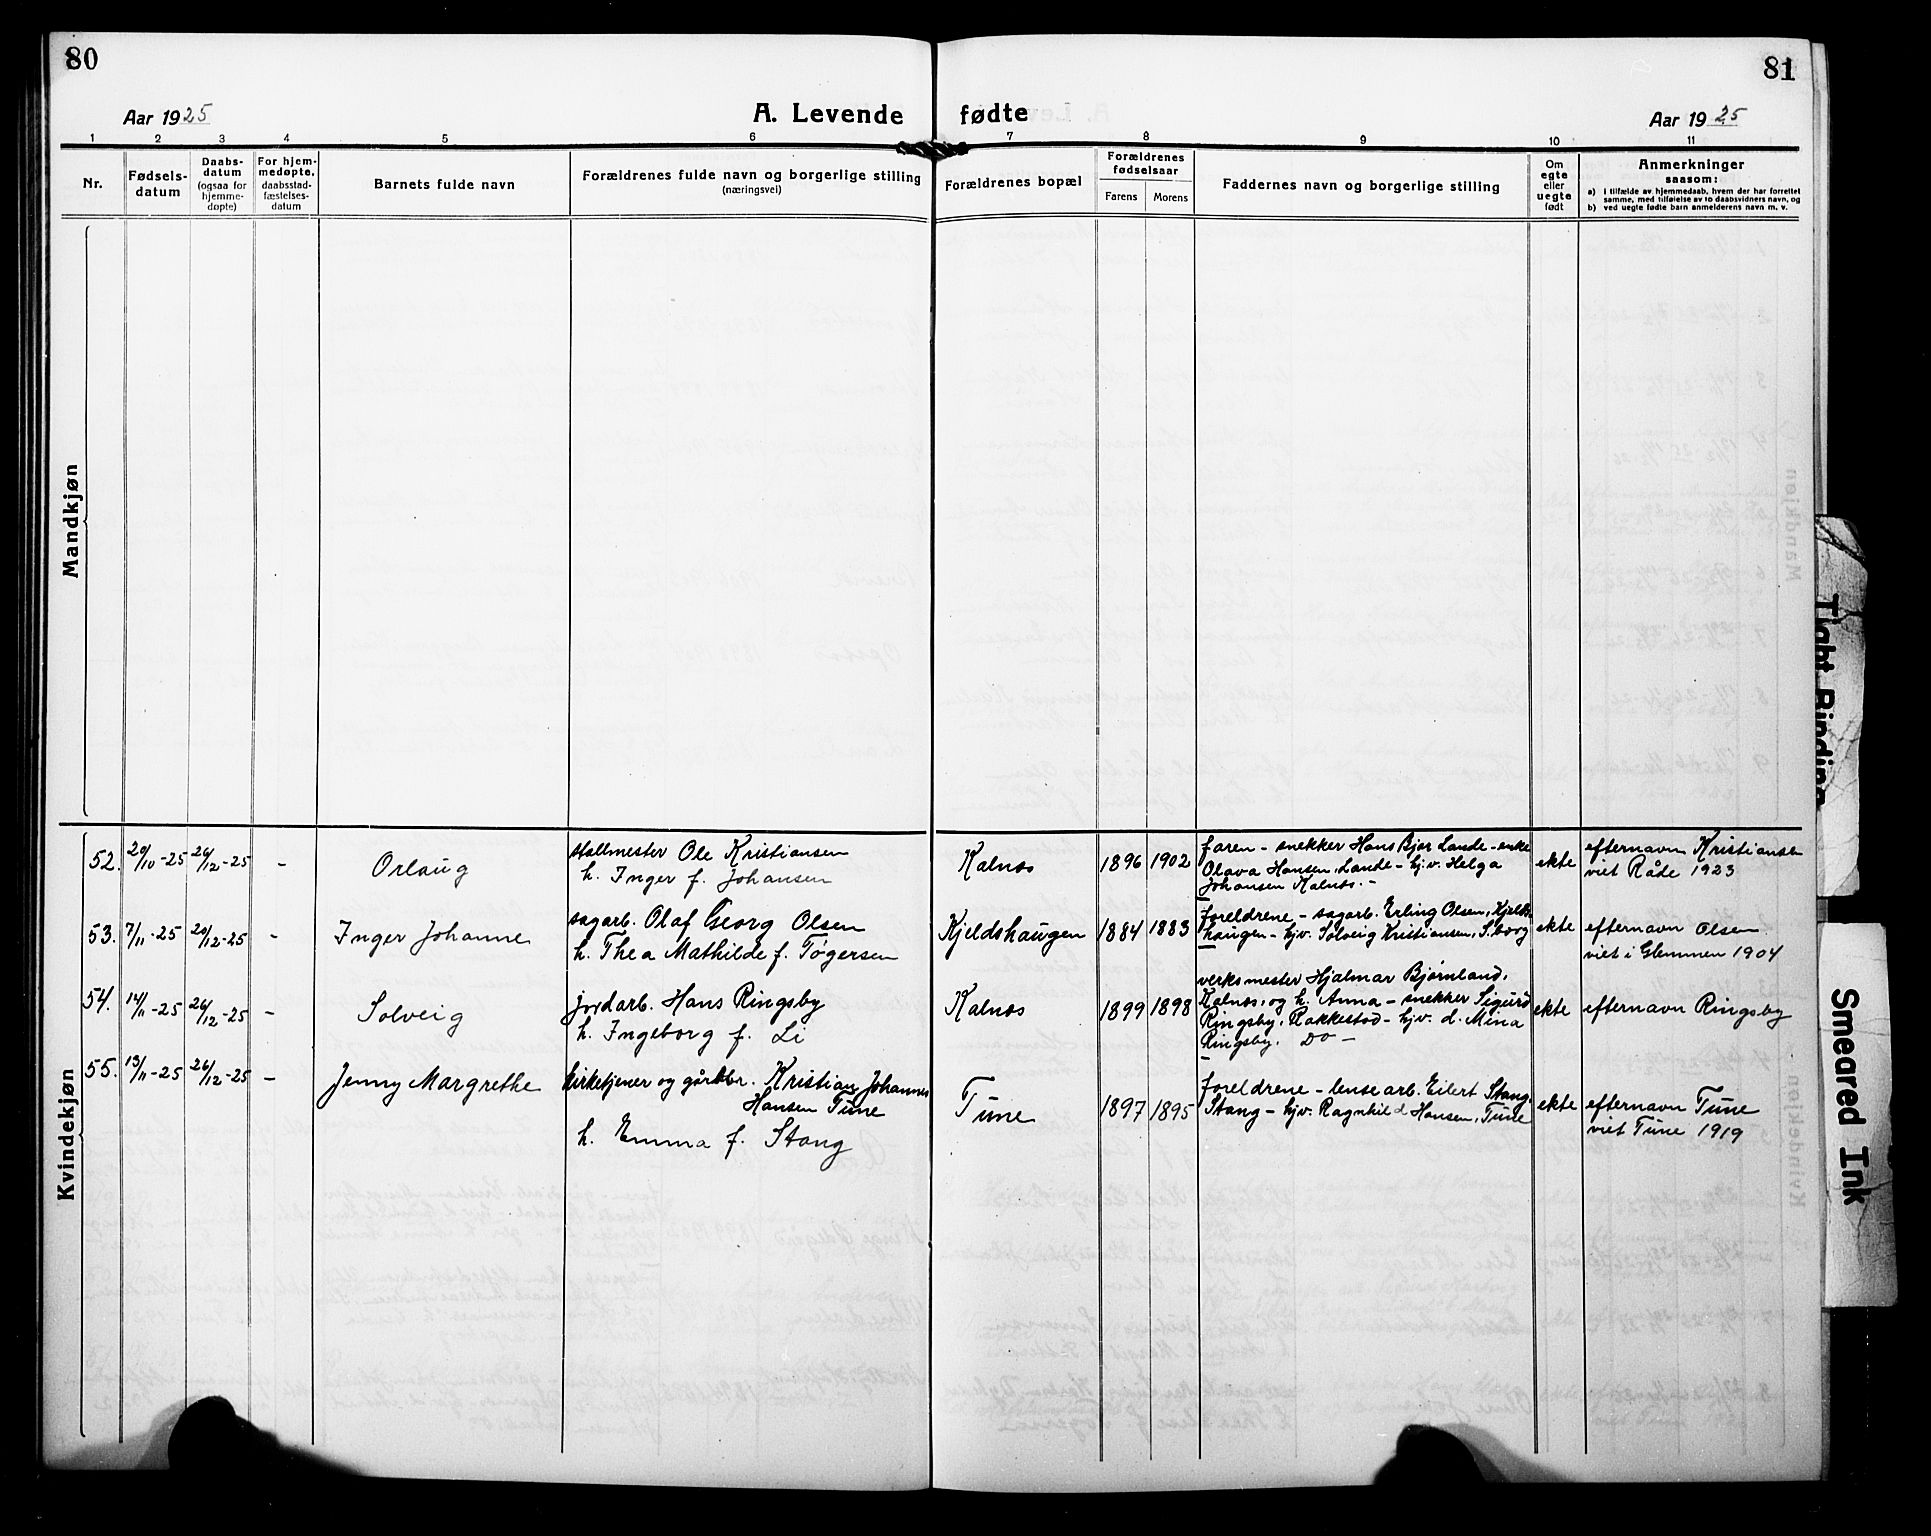 80
81
Aar 1925
A. Levende fødte
Aar 1925
1 2 3 4 5 6 7 8 9 10 11
Nr.
Fødsels-
datum
Daabs-
datum
(ogsaa for
hjemme-
døpte)
For hjem-
medøpte,
daabsstad-
fæstelses-
datum
Barnets fulde navn
Forældrenes fulde navn og borgerlige stilling
(næringsvei)
Forældrenes bopæl
Forældrenes
fødselsaar
Farens
Morens
Faddernes navn og borgerlige stilling
Om
egte
eller
uegte
født
Anmerkninger
saasom:
a) I tilfælde av hjemmedaab, hvem der har forrettet
samme, med tilføielse av to daabsvidners navn, og
b) ved uegte fødte barn anmelderens navn m. v.
Mandkjøn
Kvindekjøn
52. 20/10-25 26/12-25 - Orlaug
stallmester Ole Kristiansen
h. Inger f. Johansen
Kalnes 1896 1902
faren - snekker Hans Bjør Lande - enke
Olava Hansen, Lande - hj.v. Helga
Johansen Kalnes. -
ekte
efternavn Kristiansen
viet Råde 1923
53. 7/11-25 20/12-25 - Inger Johanne
sagarb. Olaf Georg Olsen
h. Thea Mathilde f. Tøgersen
Kjeldshaugen 1884 1883
foreldrene - sagarb. Erling Olsen, Kjelds-
haugen - hjv. Solveig Kristiansen, S.borg
ekte
efternavn Olsen
viet i Glemmen 1904
54. 14/11-25 26/12-25 - Solveig
jordarb. Hans Ringsby
h. Ingeborg f. Li
Kalnes 1899 1898
verksmester Hjalmar Bjørnland,
Kalnes, og h. Anna - snekker Sigurd
Ringsby, Rakkestad - hjv. d. Mina
Ringsby. Do -
ekte
efternavn Ringsby
55. 13/11-25 26/12-25 - Jenny Margrethe
kirketjener og gårdbr. Kristian Johannes
Hansen Tune
h. Emma f. Stang
Tune 1897 1895
foreldrene - lensearb. Eilert Stang,
Stang - hjv. Ragnhild Hansen, Tune
ekte
efternavn Tune
viet Tune 1919
Tight Binding
Smeared Ink